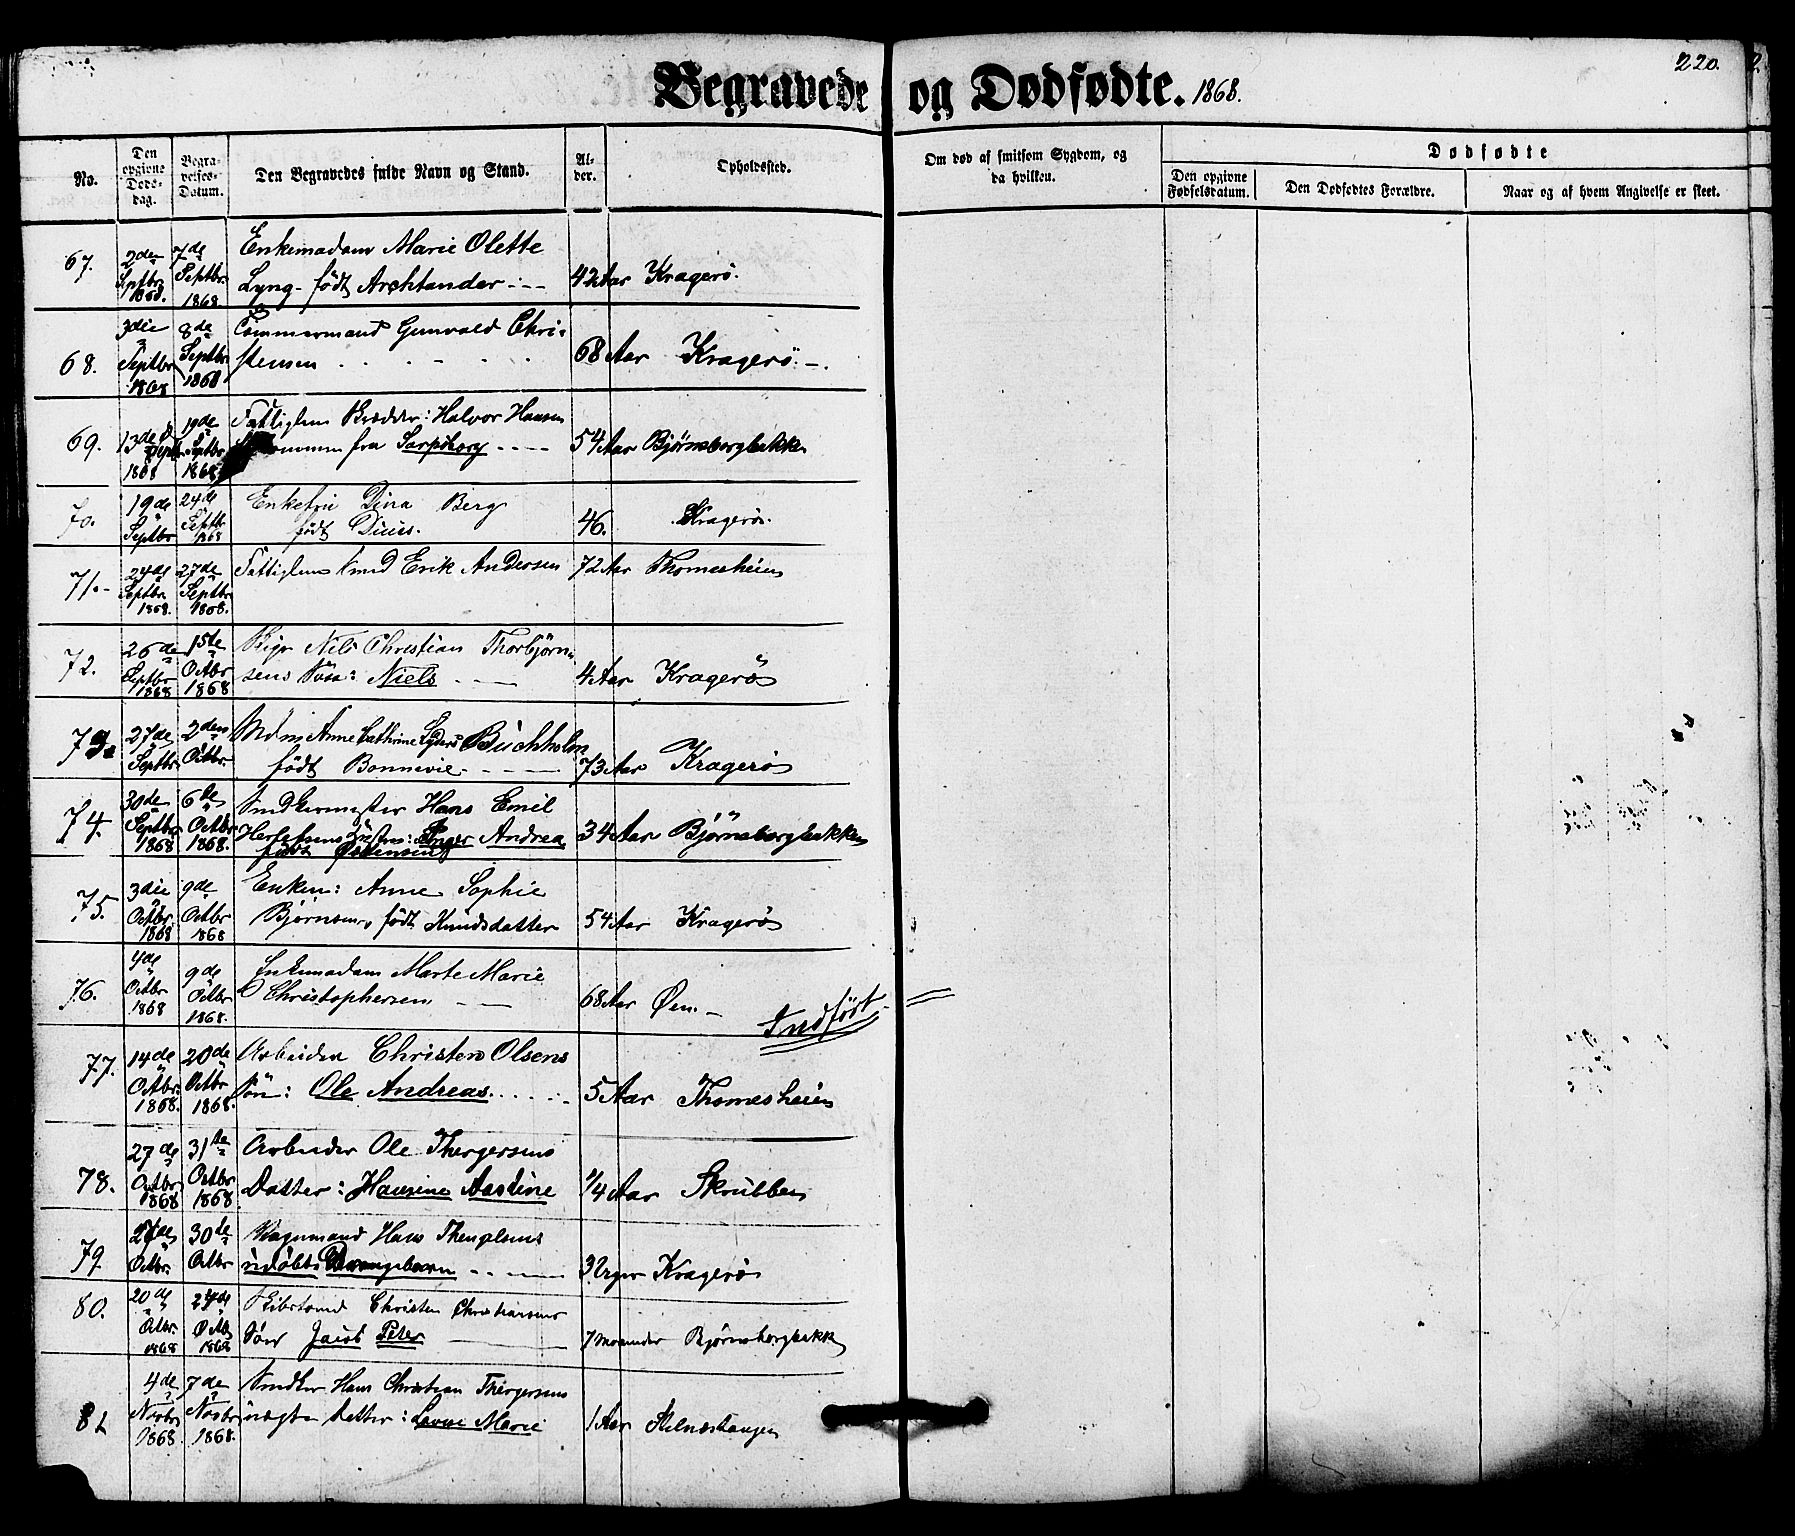 220.
Begravede og Dødfødte. 1868.
No.
Den opgivne Døds-dag.
Begra-velses-Datum.
Den Begravedes fulde Navn og Stand.
Al-der.
Opholdssted.
Om død af smitsom Sygdom, og da hvilken.
Dødfødte
Den opgivne Fødselsdatum.
Den Dødfødtes Forældre.
Naar og af hvem Angivelse er skeet.
67. 2den Septbr 1868. 7de Septbr 1868 Enkemadam Marie Olette
Lyng født 42 Aar Kragerö.
68. 3die Septbr 1868 8de Septbr 1868 Tömmermand Gunvald Chri-
stensen 68 Aar Kragerö.
69. 13de Septbr 1868 19de Septbr 1868 Fattiglem Halvor Hansen
fra Sarpsborg 54 Aar Bjørnsborgbakken
70. 19de Septbr 24de Septbr 1868 Enkefru Dina Berg
født 46. Kragerö.
71. 24de Septbr 1868. 27de Septbr 1868. Fattiglem Knud Erik Andersen 72 Aar Thomesheien
72. 26de Septbr 1868 15te Octbr 1868 Nils Christian Thorbjørn-
sens Sön: Niels 4 Aar Kragerö
73. 27de Septbr. 2den Octbr. Mdm Anne Cathrine Buchholm
født Bonnevie 73 Aar Kragerö
74. 30de Septbr 1868 6te Octbr 1868. Hans Emil
Inger Andrea 34 Aar Bjørnsborgbakken
født
75. 3die Octbr 1868 9de Octbr 1868 Enken: Anne Sophie
Bjørnsen, født Knudsdatter 54 Aar Kragerö
76. 4de Octbr 1868 9de Octbr 1868. Enkemadam Marte Marie
Christophersen 68 Aar Øen.
Indført
77. 14de Octbr 1868. 20de Octbr 1868. Arbeider Christen Olsens
Sön: Ole Andreas 5 Aar Thomesheien
78. 27de Octbr 1868 31te Octbr 1868 Arbeider Ole Thergersens
Datter: Hansine Aastine 1/4 Aar Skrubben
79. Octbr. 30te Octbr Hans
udøbte Drengebarn 3 Uger Kragerö
80. 20de Octbr. 1868 24de Octbr 1868 Christen Christiansens
Sön Jacob Peter 7 Maaneder Bjørnsborgbakk
81. 4de Novbr 1868. 7de Novbr 1868. Snedker Hans Christian Thergersens
uægte Datter: Marie 1 Aar